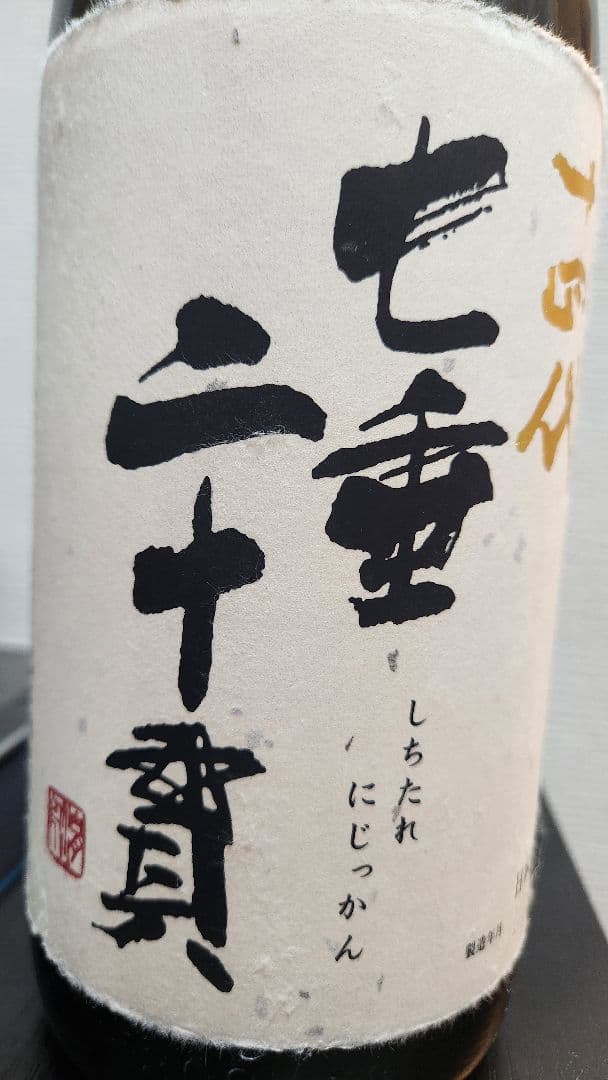 十四代
七垂
二十貫
しちたれ
にじっかん
製造年月